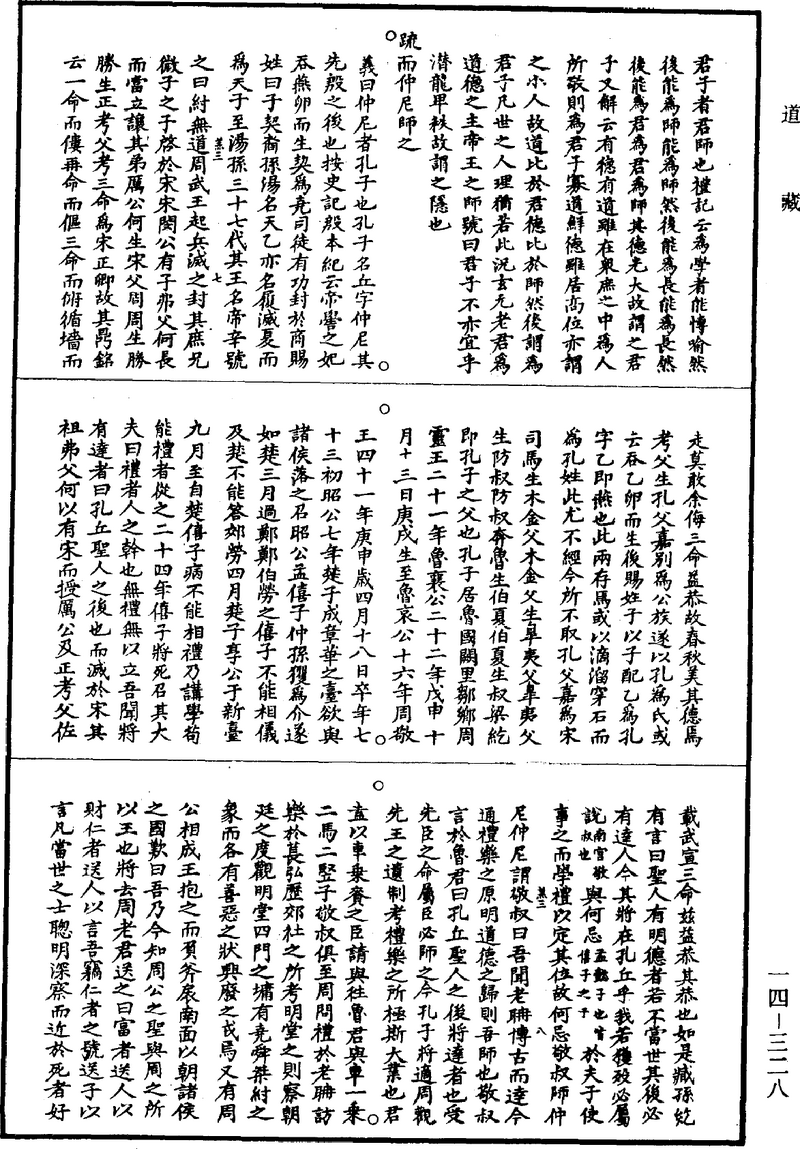 道藏
君子者君師也禮記云為學者能博喻然
後能為師能為師然後能為長能為長然
後能為君為君為師其德光大故謂之君
子又解云有德有道雖在衆庶之中為人
所敬則為君子寡道鮮德雖居高位亦謂
之小人故道比於君德比於師然後謂為
君子凡世之人理猶若此況玄元老君為
道德之主帝王之師號曰君子不亦宜乎
潛龍卑秩故謂之隱也
疏而仲尼師之
義曰仲尼者孔子也孔子名丘字仲尼其
先殷之後也按史記殷本紀云帝嚳之妃
吞燕卵而生契為堯司徒有功封於商賜
姓曰子契裔孫湯名天乙亦名履滅夏而
為天子至湯孫三十七代其王名帝辛號
之曰紂無道周武王起兵滅之封其庶兄
微子之子啓於宋宋閔公有子弗父何長
而當立讓其弟厲公何生宋父周周生勝
勝生正考父考三命為宋正卿故其鼎銘
云一命而僂再命而傴三命而俯循墻而
走莫敢余侮三命益恭故春秋美其德焉
考父生孔父嘉別為公族遂以孔為氏或
云吞乙卵而生後賜姓子以子配乙為孔
字乙即燕也此兩存焉或以滴溜穿石而
為孔姓此尤不經今所不取孔父嘉為宋
司馬生木金父木金父生皐夷父皐夷父
生防叔防叔奔魯生伯夏伯夏生叔梁紇
即孔子之父也孔子居魯國闕里鄒鄉周
靈王二十一年魯襄公二十二年戊申十
月十三日庚戌生至魯哀公十六年周敬
王四十一年庚申歲四月十八日卒年七
十三初昭公七年楚子成章華之臺欲與
諸侯落之召昭公孟僖子仲孫玃為介遂
如楚三月過鄭鄭伯勞之僖子不能相儀
及楚不能答郊勞四月楚子享公于新臺
九月至自楚僖子病不能相禮乃講學苟
能禮者從之二十四年僖子將死召其大
夫曰禮者人之幹也無禮無以立吾聞將
有達者曰孔丘聖人之後也而滅於宋其
祖弗父何以有宋而授厲公及正考父佐
戴武宣三命玆益恭其恭也如是臧孫紇
有言曰聖人有明德者若不當世其後必
有達人今其將在孔丘乎我若獲歿必屬
說南宮敬叔也與何忌孟懿子也皆僖子之子於夫子使
事之而學禮以定其位故何忌敬叔師仲
尼仲尼謂敬叔曰吾聞老聃博古而達今
通禮樂之原明道德之歸則吾師也敬叔
言於魯君曰孔丘聖人之後將達者也受
先臣之命屬臣必師之今孔子將適周觀
先王之遺制考禮樂之所極斯大業也君
盍以車乘賚之臣請與往魯君與車一乘
二馬二竪子敬叔俱至周問禮於老聃訪
樂於萇弘歷郊社之所考明堂之則察朝
廷之度觀明堂四門之墉有堯舜桀紂之
象而各有善惡之狀興廢之戒焉又有周
公相成王抱之而負斧扆南面以朝諸侯
之國歎曰吾乃今知周公之聖與周之所
以王也將去周老君送之曰富者送人以
財仁者送人以言吾竊仁者之號送子以
言凡當世之士聰明深察而近於死者好
羔三 七
羔三 八
一四—三二八